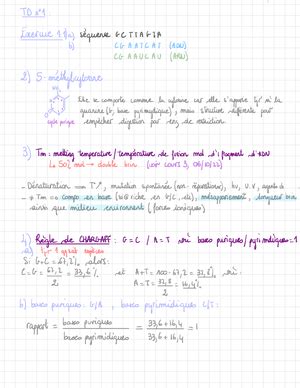 TD n°1
Exercice 1 a) séquence G C T T A G T A
b) C G A A T C A T (ADN)
C G A A U C A U (ARN)
2) 5-méthylcytosine
Elle se comporte comme la cytosine car elle s'apparie
guanine (G, base pyrimidique), mais structure différente pour
empêcher digestion par enz de restriction.
3) Tm: melting temperature / température de fusion mol d'ADN
50% mol → double brin (voir cours 3,
- Dénaturation = T↗, mutation spontanée (non réparations), UV, agents
- Tm = compo en base (riche en G/C, etc), longueur brin
ainsi que milieu environnant (forces ioniques)
4) Règle de CHARGAFF : G=C / A=T bases puriques/pyrimidiques=1
a)
Si G+C = 67,2%, alors:
C=G= 67,2/2 = 33,6% et A+T = 100-67,2 = 32,8%,
A=T= 32,8/2 = 16,4%
b) bases puriques: G/A, bases pyrimidiques C/T:
rapport = bases puriques / bases pyrimidiques = 33,6+16,4 / 33,6+16,4 = 1